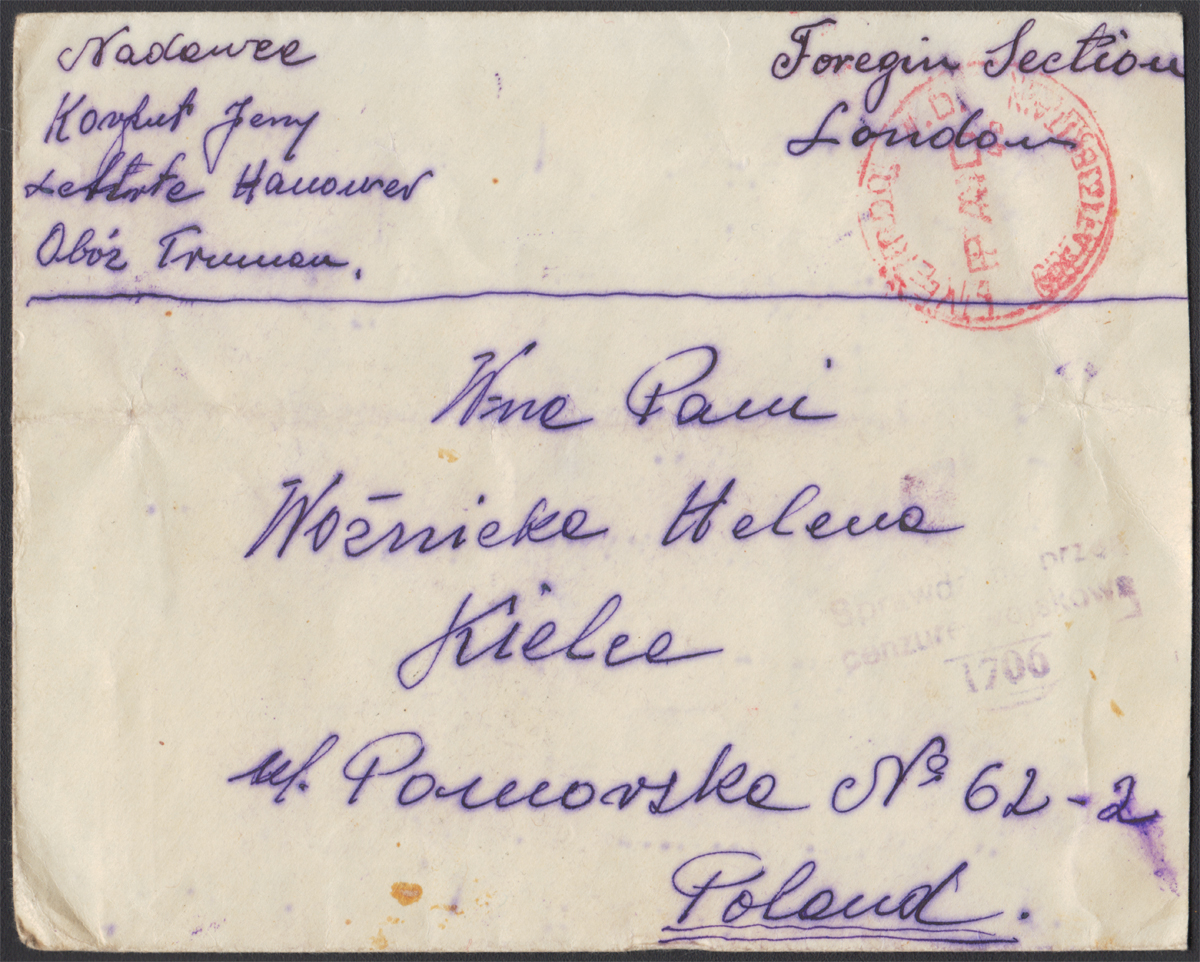 Nadawca
Korfut Jerzy
Lehrte Hanower
Obóz Truman.
Foregin Section
London
PAID
W-na Pani
Woźnicka Helena
Kielce
ul. Pomorska № 62-2
Poland.
przez
cenzurę wojskową
1706